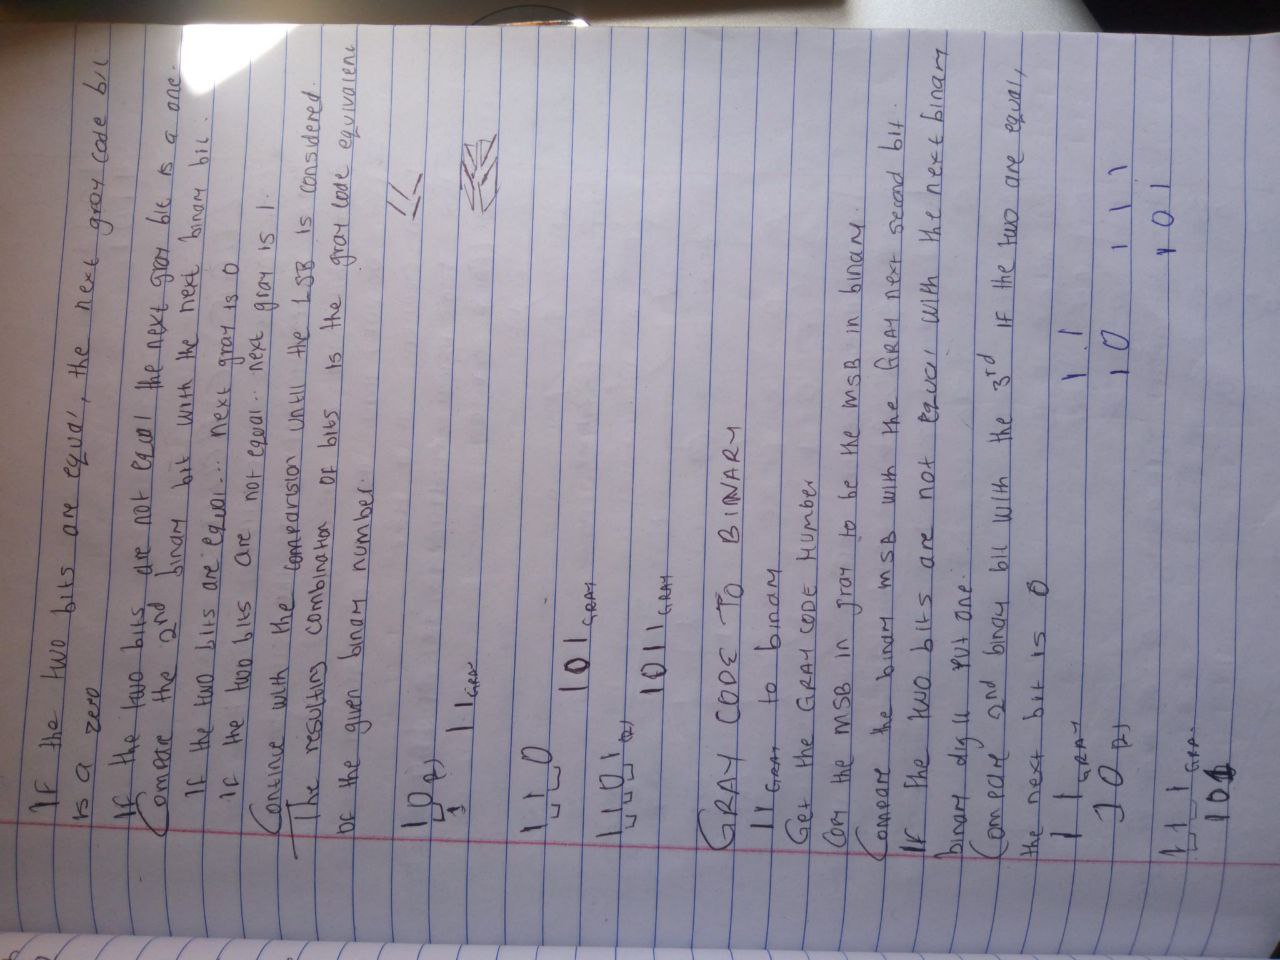 If the two bits are equal, the next gray code bit
is a zero
If the two bits are not equal the next gray bit is a one.
Compare the 2nd binary bit with the next binary bit.
If the two bits are equal... next gray is 0
If the two bits are not equal.. next gray is 1.
Continue with the comparision until the LSB is considered.
The resulting combination of bits is the gray code equivalent
of the given binary number.
10(2)
1
11GRA
110
101GRAY
1101(2)
1011GRAY
GRAY CODE TO BINARY
11GRAY to binary
Get the GRAY CODE Number
Copy the MSB in gray to be the MSB in binary.
Compare the binary MSB with the GRAY next second bit.
If the two bits are not equal with the next binary
binary digit put one.
Compare 2nd binay bit with the 3rd if the two are equal,
the next bit is 0
11GRAY
1.1
10(2)
10
111
101
111GRA.
101